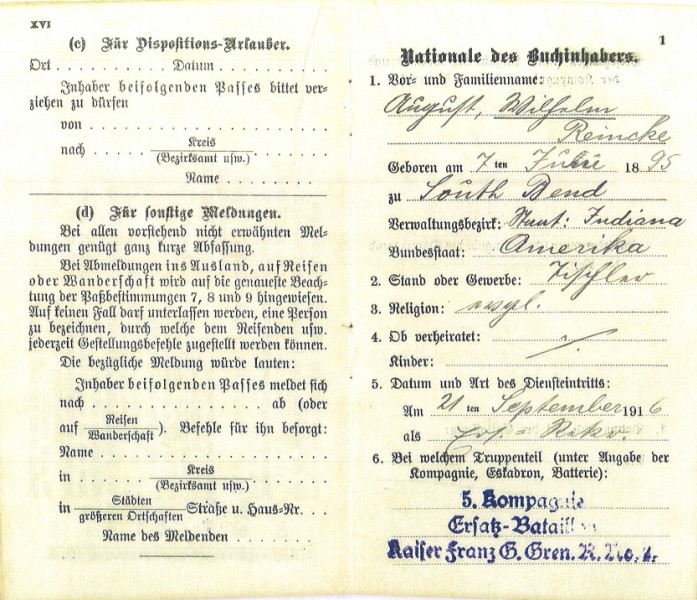 XVI
(c) Für Dispositions-Urlauber.
Ort . . . . . . . . . . . Datum . . . . . . . . . . .
Inhaber beifolgenden Passes bittet ver-
ziehen zu dürfen
von . . . . . . . . . . . . . . . . . . . .
nach . . . . . . . Kreis . . . . . . .
(Bezirksamt usw.)
Name . . . . . . . . .
(d) Für sonstige Meldungen.
Bei allen vorstehend nicht erwähnten Mel-
dungen genügt ganz kurze Abfassung.
Bei Abmeldungen ins Ausland, auf Reisen
oder Wanderschaft wird auf die genaueste Beach-
tung der Paßbestimmungen 7, 8 und 9 hingewiesen.
Auf keinen Fall darf unterlassen werden, eine Person
zu bezeichnen, durch welche dem Reisenden usw.
jederzeit Gestellungsbefehle zugestellt werden können.
Die bezügliche Meldung würde lauten:
Inhaber beifolgenden Passes meldet sich
nach . . . . . . . . . . . . . ab (oder
auf Reisen
Wanderschaft). Befehle für ihn besorgt:
Name . . . . . . . . . . . . . . . . . . . .
in . . . . . . . Kreis . . . . . . .
(Bezirksamt usw.)
in Städten
größeren Ortschaften Straße u. Haus-Nr. . . . .
Name des Meldenden . . . . . . . .
1
Nationale des Buchinhabers.
1. Vor- und Familienname:
August, Wilhelm
Reincke
Geboren am 7 ten 1895
zu South Bend
Verwaltungsbezirk: Staat: Indiana
Bundesstaat: Amerika
2. Stand oder Gewerbe: Tischler
3. Religion: evgl.
4. Ob verheiratet: ./.
Kinder:
5. Datum und Art des Diensteintritts:
Am 21 ten September 1916
als Ers.-Rekr.
6. Bei welchem Truppenteil (unter Angabe der
Kompagnie, Eskadron, Batterie):
5. Kompagnie
Ersatz-Bataillon
Kaiser Franz G. Gren. R. No. 2.